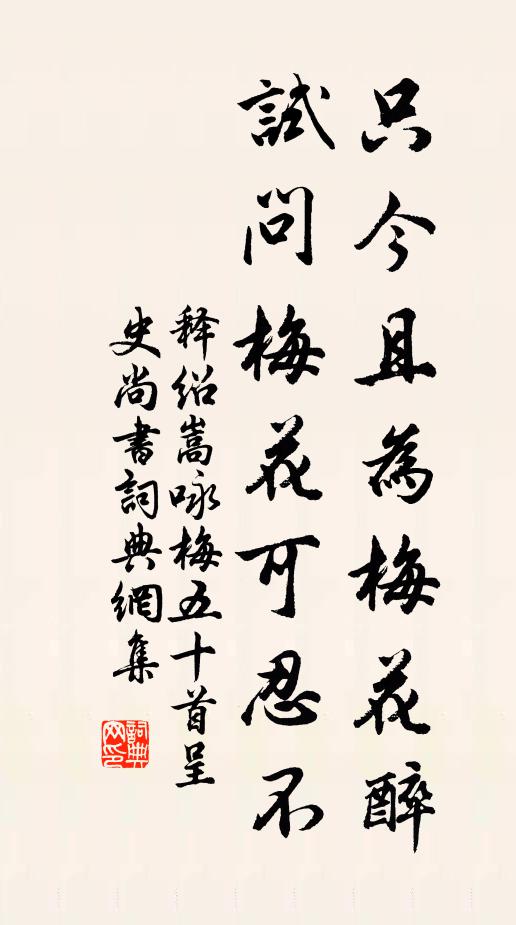 只今且為梅花醉
試問梅花可忍不
释绍嵩咏梅五十首呈
史尚書詞典網集
詞典
网印